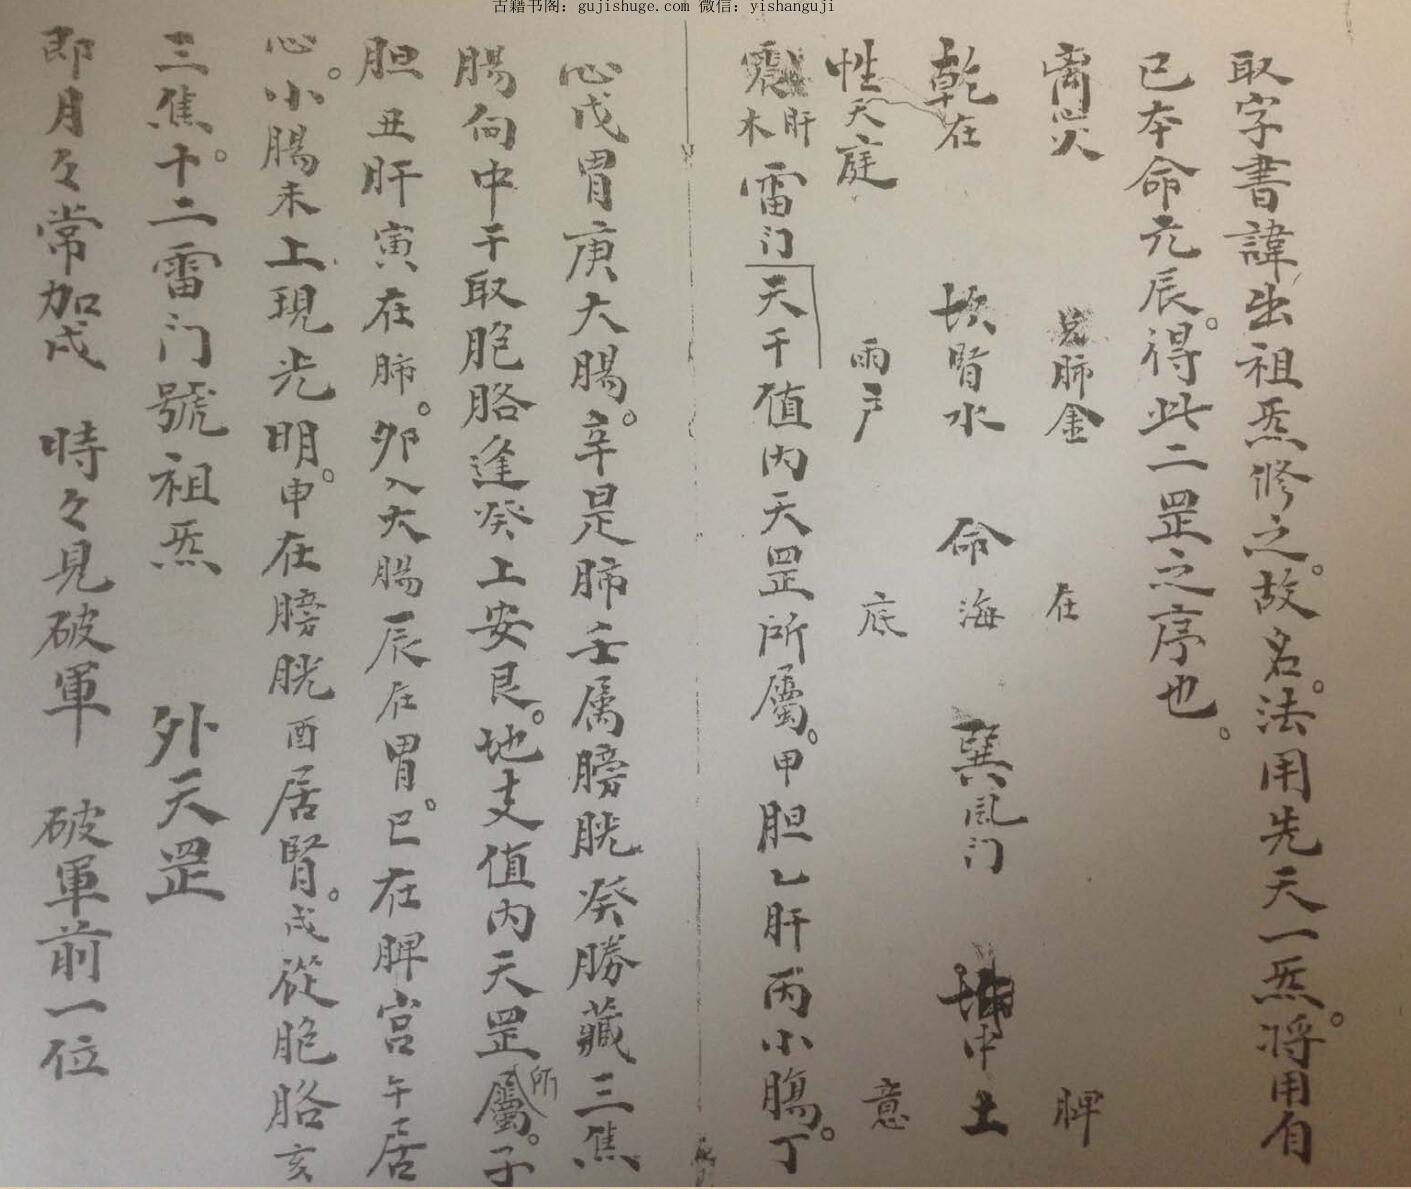 古籍书阁：gujishuge.com 微信：yishanguji
取字書諱出祖炁修之。故名。法用先天一炁。將用自
已本命元辰。得此二罡之序也。
离心火 兑肺金 在 脾
乾在 坎腎水 命海 巽風门 坤中土
性天庭 雨户 底 意
震肝木 雷门 天干值内天罡所屬。甲胆乙肝丙小腸。丁
心戊胃庚大腸。辛是肺壬属膀胱癸勝藏三焦
腸向中干取胞胳逢癸上安艮。地支值内天罡所屬。子
胆丑肝寅在肺。卯入大腸辰在胃。巳在脾宫午居
心。小腸未上現光明。申在膀胱酉居腎。戌從胞胳亥
三焦。十二雷门號祖炁 外天罡
即月々常加戌 時々見破軍 破軍前一位